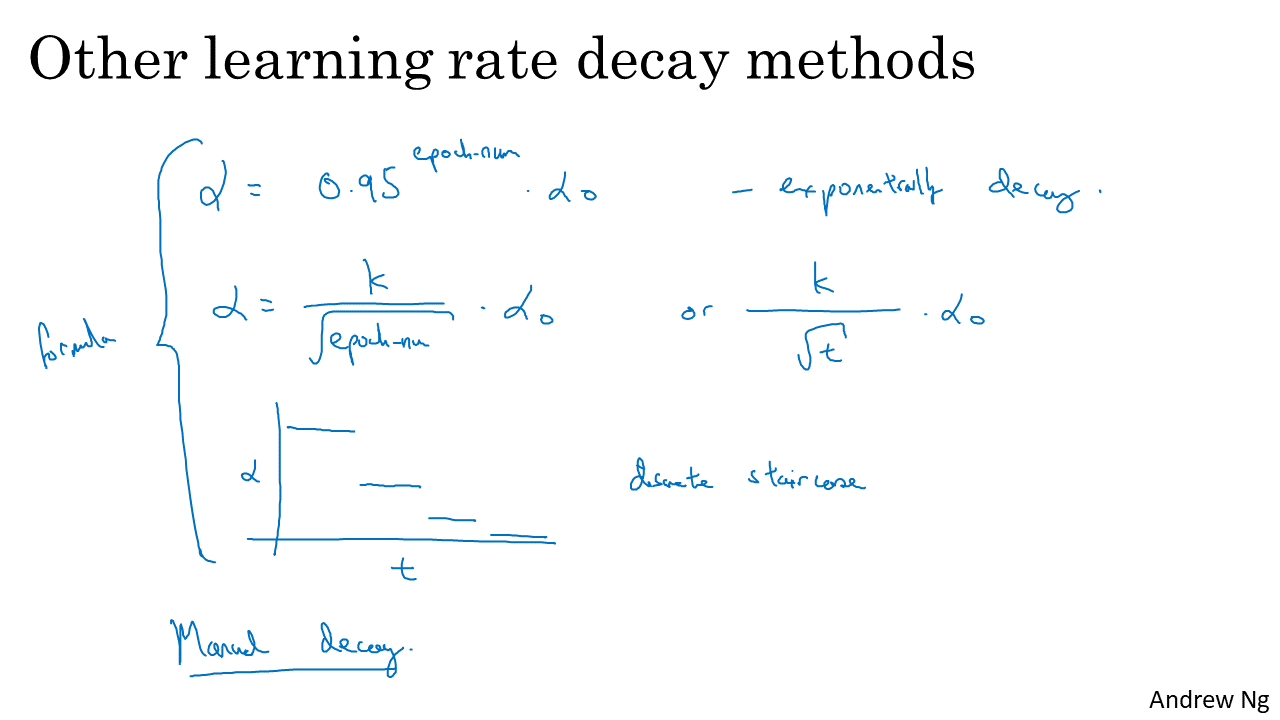 Other learning rate decay methods
α = 0.95^epoch-num · α₀ - exponentially decay.
formula
α = k / √epoch-nu · α₀ or k / √t · α₀
α
discrete staircase
t
Manual decay.
Andrew Ng